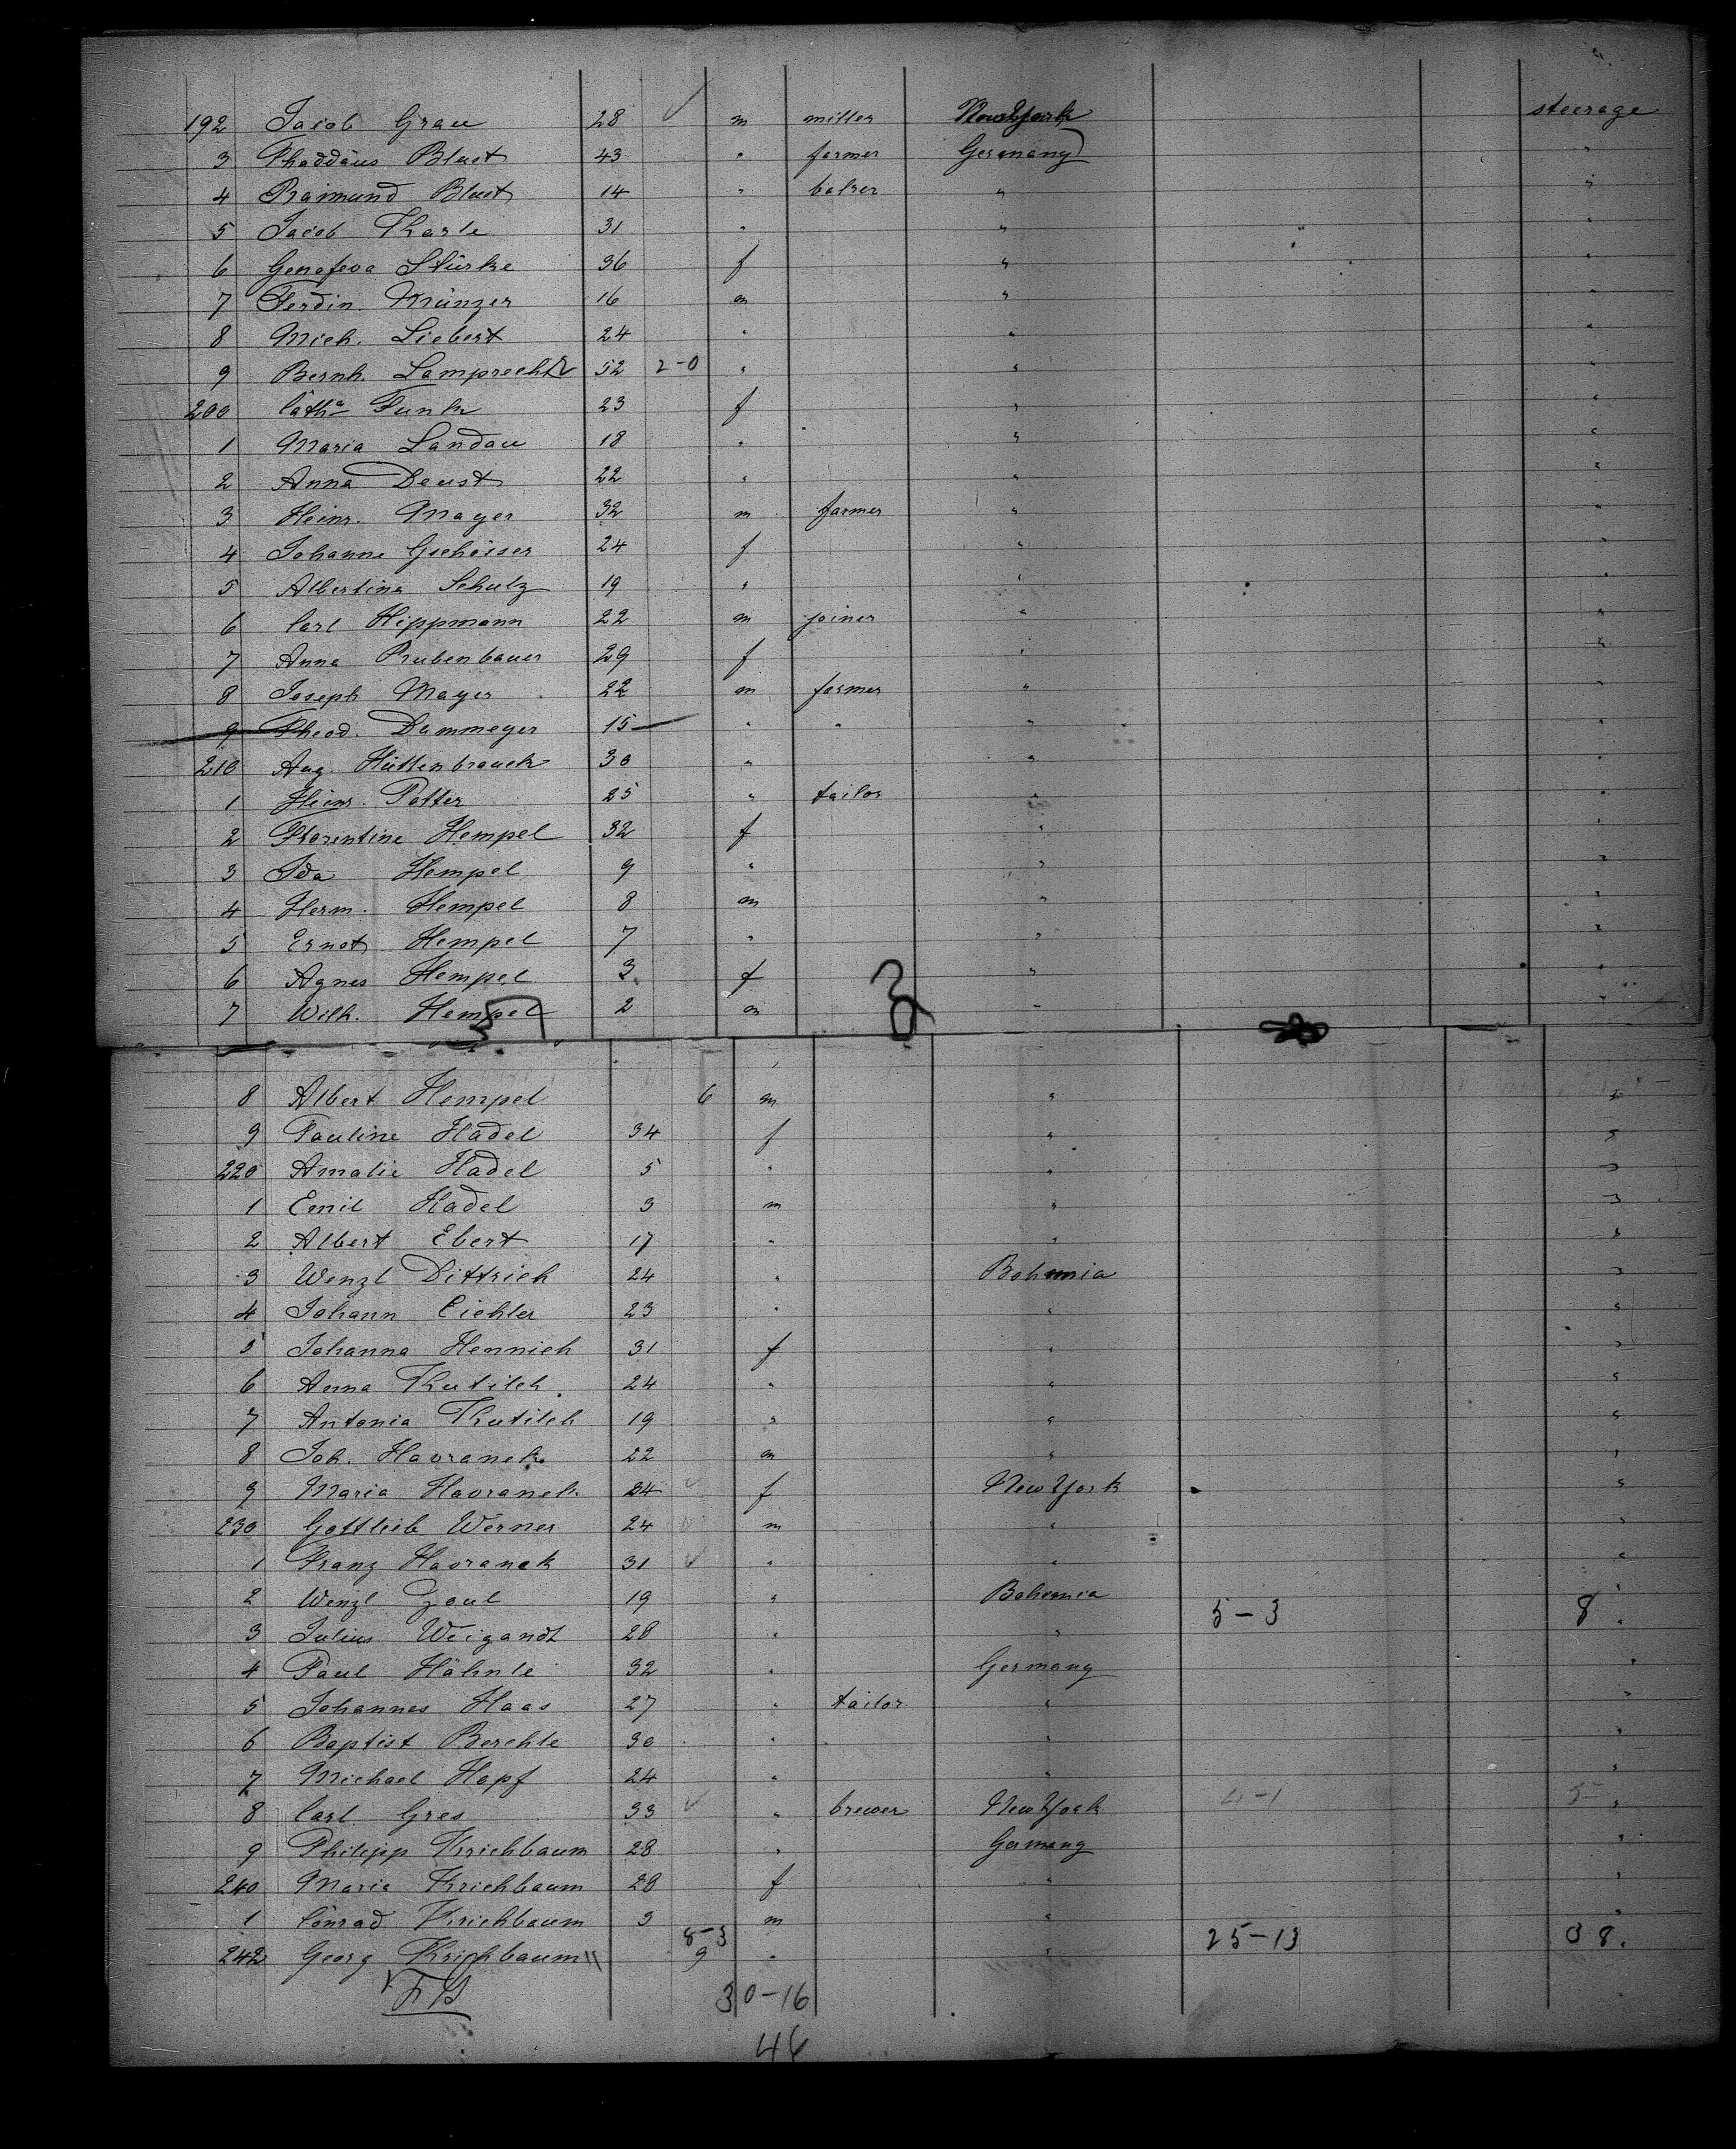 192 Jacob Grau 28 ✓ m miller New York steerage
3 Thaddäus Blust 43 " farmer Germany "
4 Raimund Blust 14 " baker " "
5 Jacob Karle 31 " " "
6 Genofeva Stürke 36 f " "
7 Ferdin. Künzer 16 m " "
8 Mich. Liebert 24 " " "
9 Bernh. Lamprecht 52 2-0 " " "
200 Catha Funk 23 f " "
1 Maria Landau 18 " " "
2 Anna Deust 22 " " "
3 Heinr. Mayer 32 m farmer " "
4 Johanne Gscheiser 24 f " "
5 Albertina Schulz 19 " " "
6 Carl Hippmann 22 m joiner " "
7 Anna Rubenbauer 29 f " "
8 Joseph Mayer 22 m farmer " "
9 Theod. Dammeyer 15 " " " "
210 Aug. Hüttenbrauck 30 " " "
1 Heinr. Potter 25 " tailor " "
2 Florentine Hempel 32 f " "
3 Ida Hempel 9 " " "
4 Herm. Hempel 8 m " "
5 Ernst Hempel 7 " " "
6 Agnes Hempel 3 f " "
7 Wilh. Hempel 2 m " "
8 Albert Hempel 6 m " "
9 Pauline Hadel 34 f " "
220 Amalie Hadel 5 " " "
1 Emil Hadel 3 m " "
2 Albert Ebert 17 " " "
3 Wenzl Dittrich 24 " Bohemia "
4 Johann Eichler 23 " " "
5 Johanna Hennich 31 f " "
6 Anna Kutilek 24 " " "
7 Antonia Kutilek 19 " " "
8 Joh. Havranek 22 m " "
9 Maria Havranek 24 ✓ f New York "
230 Gottlieb Werner 24 m " "
1 Franz Havranek 31 ✓ " " "
2 Wenzl Zoul 19 " Bohemia "
5-3 8
3 Julius Weigandt 28 " " "
4 Paul Hähnle 32 " Germany "
5 Johannes Haas 27 " tailor " "
6 Baptist Berchle 30 " " "
7 Michael Hopf 24 " " "
8 Carl Gres 33 ✓ " brewer New York 4-1 5 "
9 Philipp Krichbaum 28 " Germany "
240 Maria Krichbaum 28 f " "
1 Conrad Krichbaum 3 m " "
8-3 25-13 38.
242 Georg Krichbaum 9 " "
30-16
46